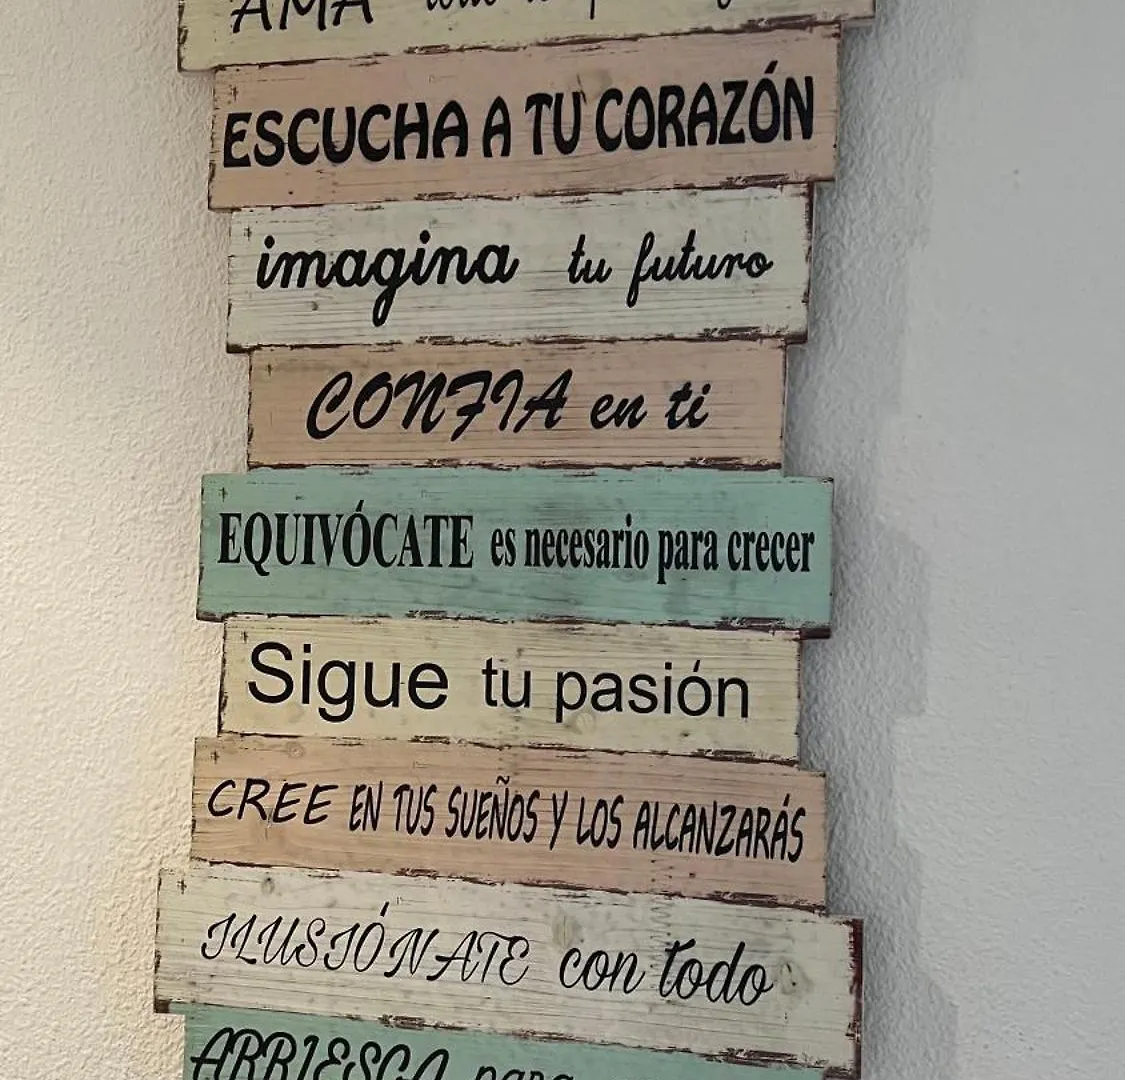 AMA todo
ESCUCHA A TU CORAZÓN
imagina tu futuro
CONFIA en ti
EQUIVÓCATE es necesario para crecer
Sigue tu pasión
CREE EN TUS SUEÑOS Y LOS ALCANZARÁS
ILUSIÓNATE con todo
ARRIESGA para